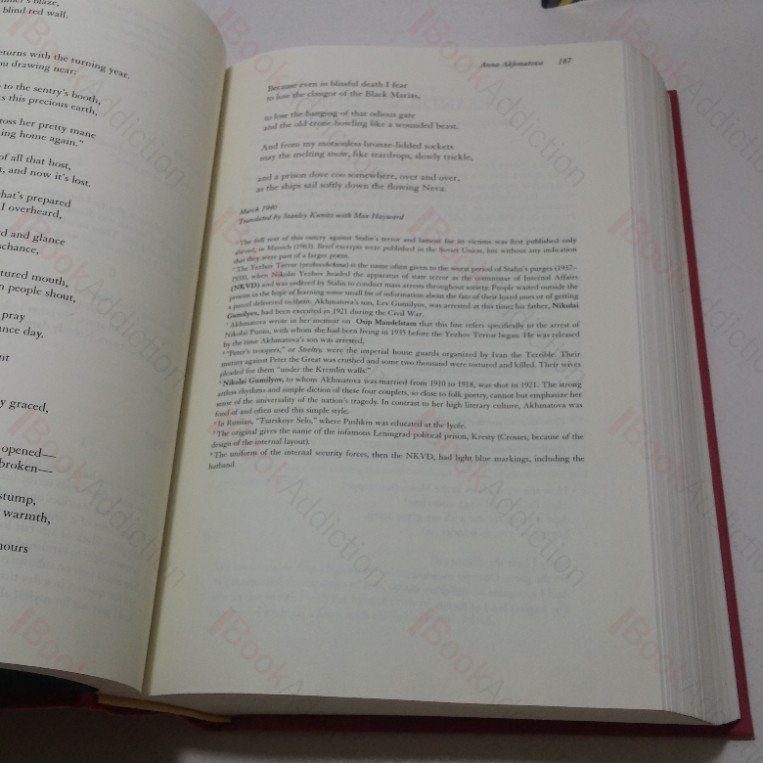 blind red wall.
eturns with the turning year.
u drawing near:
to the sentry's booth,
s this precious earth,
oss her pretty mane
ing home again."
of all that host,
, and now it's lost.
hat's prepared
I overheard,
d and glance
schance,
tured mouth,
n people shout,
pray
ance day.
nt
y graced,
opened—
broken—
stump,
warmth,
hours
Anna Akhmatova 187
Because even in blissful death I fear
to lose the clangor of the Black Marias,
to lose the banging of that odious gate
and the old crone howling like a wounded beast.
And from my motionless bronze-lidded sockets
may the melting snow, like teardrops, slowly trickle,
and a prison dove coo somewhere, over and over,
as the ships sail softly down the flowing Neva.
March 1940
Translated by Stanley Kunitz with Max Hayward
¹ The full text of this outcry against Stalin's terror and lament for its victims was first published only
abroad, in Munich (1963). Brief excerpts were published in the Soviet Union, but without any indication
that they were part of a larger poem.
² The Yezhov Terror (yezhovshchina) is the name often given to the worst period of Stalin's purges (1937–
1938, when Nikolai Yezhov headed the apparatus of state terror as the commissar of Internal Affairs
(NKVD) and was ordered by Stalin to conduct mass arrests throughout society. People waited outside the
prisons in the hope of learning some small bit of information about the fate of their loved ones or of getting
a parcel delivered to them. Akhmatova's son, Lev Gumilyov, was arrested at this time; his father, Nikolai
Gumilyov, had been executed in 1921 during the Civil War.
³ Akhmatova wrote in her memoir on Osip Mandelstam that this line refers specifically to the arrest of
Nikolai Punin, with whom she had been living in 1935 before the Yezhov Terror began. He was released
by the time Akhmatova's son was arrested.
⁴ "Peter's troopers," or Streltsy, were the imperial house guards organized by Ivan the Terrible. Their
mutiny against Peter the Great was crushed and some two thousand were tortured and killed. Their wives
pleaded for them "under the Kremlin walls."
⁵ Nikolai Gumilyov, to whom Akhmatova was married from 1910 to 1918, was shot in 1921. The strong
artless rhythms and simple diction of these four couplets, so close to folk poetry, cannot but emphasize her
sense of the universality of the nation's tragedy. In contrast to her high literary culture, Akhmatova was
fond of and often used this simple style.
⁶ In Russian, "Tsarskoye Selo," where Pushkin was educated at the lycée.
⁷ The original gives the name of the infamous Leningrad political prison, Kresty (Crosses, because of the
design of the internal layout).
⁸ The uniform of the internal security forces, then the NKVD, had light blue markings, including the
hatband.
BookAddiction